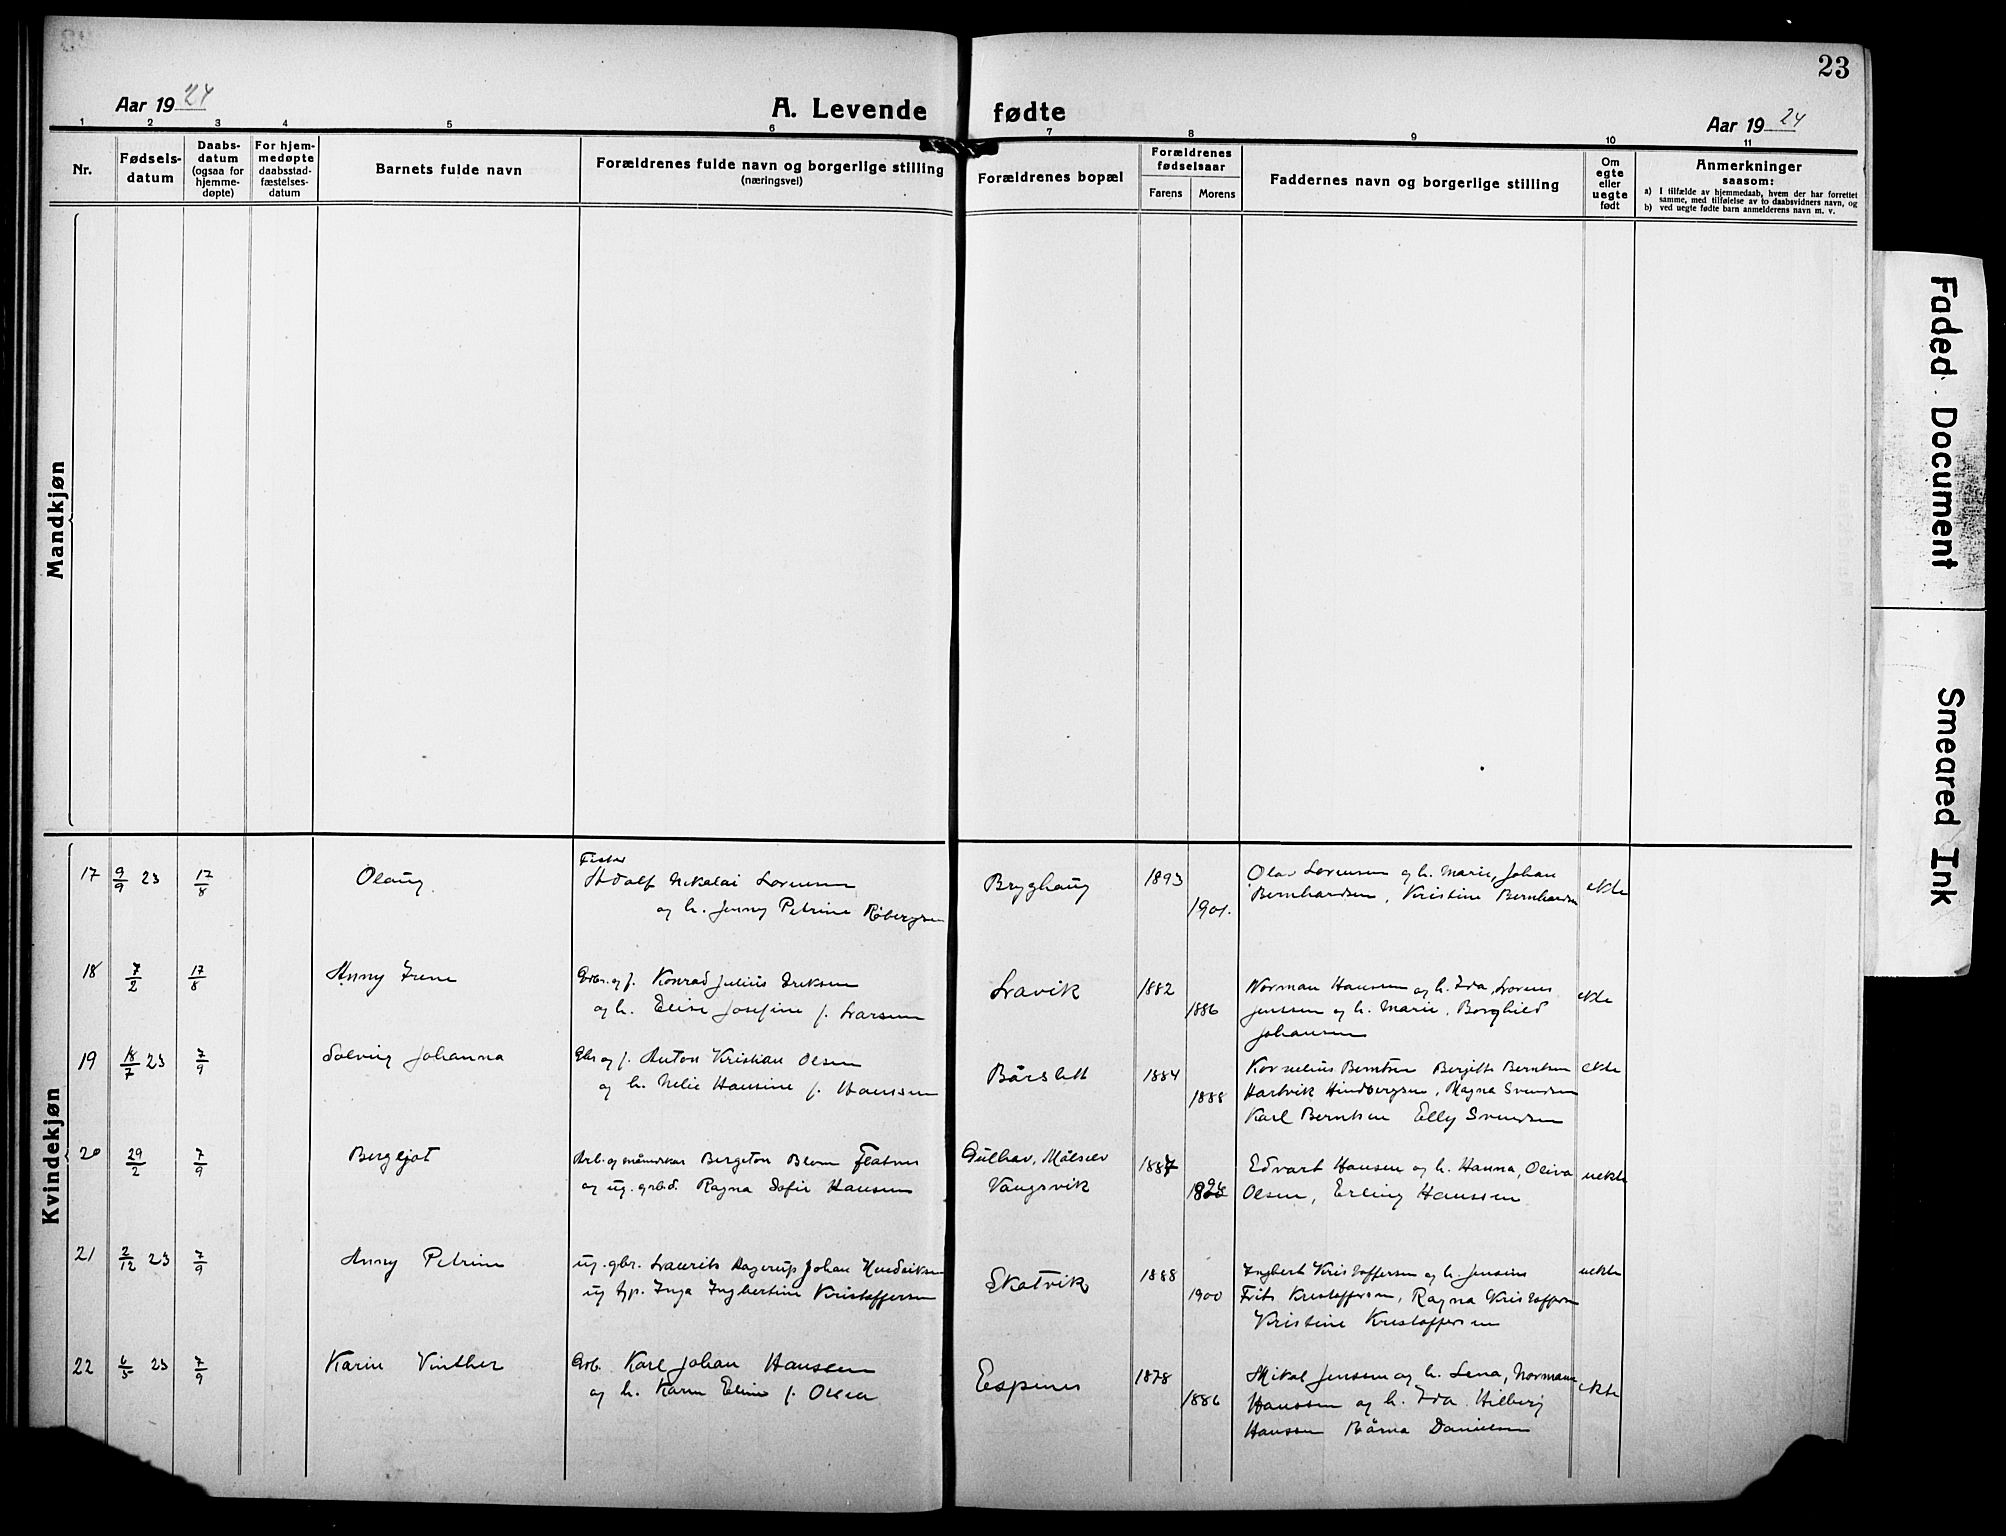 23
Aar 1924
A. Levende fødte
Aar 1924
1 2 3 4 5 6 7 8 9 10 11
Nr.
Fødsels-
datum
Daabs-
datum
(ogsaa for
hjemme-
døpte)
For hjem-
medøpte
daabsstad-
fæstelses-
datum
Barnets fulde navn
Forældrenes fulde navn og borgerlige stilling
(næringsvei)
Forældrenes bopæl
Forældrenes
fødselsaar
Farens Morens
Faddernes navn og borgerlige stilling
Om
egte
eller
uegte
født
Anmerkninger
saasom:
a) I tilfælde av hjemmedaab, hvem der har forrettet
samme, med tilføielse av to daabsvidners navn, og
b) ved uegte fødte barn anmelderens navn m. v.
Mandkjøn
Kvindekjøn
17 9/9 23 17/8 Olaug
Fisker
Adolf Nikolai Lorensen
og h. Jenny Petrine Robergsen
Bryghaug 1893
1901.
Olav Lorensen og h. Marie, Johan
Bernhardsen, Kristine Bernhardsen
ekte
18 7/2 17/8 Anny Irene
Gbr. og f. Konrad Julius Eriksen
og h. Elise Josefine f. Larsen
Lavik 1882
1886
Norman Hansen og h. Ida, Lorens
Jenssen og h. Marie, Borghild
Johansen
ekte
19 18/7 23 7/9 Solveig Johanna
Gbr og f. Anton Kristian Olsen
og h. Nelie Hansine f. Hanssen
Bårslett 1884
1888
Kornelius Berntsen Bergitte Berntsen
Hartvik Hindbergsen, Magna Svendsen
Karl Berntsen Elly Svendsen
ekte
20 29/2 7/9 Bergljot
Arb. og Bergeton Blom
og ug. Ragna Sofie Hansen
Gulhav, Målselv
Vangsvik
1887
Edvart Hansen og h. Hanna, Oliva
Olsen, Erling Hanssen
uekte
21 2/12 23 7/9 Anny Petrine
ug. gbr. Laurits Hagerup Johan Hendriksen
ug Inga Ingbertine Kristoffersen
Skatvik 1888
1900
Ingbert Kristoffersen og h. Jensine
Frits Kristoffersen, Ragna Kristoffersen
Kristine Kristoffersen
uekte
22 6/5 23 7/9 Karin Vinther
Grb. Karl Johan Hanssen
og h. Karen Eline f. Olsen
Espenes 1878
1886
Mikal Jenssen og h. Lena, Normann
Hanssen og h. Ida Hilberg
Hanssen Bårna Danielsen
ekte
Faded Document
Smeared Ink